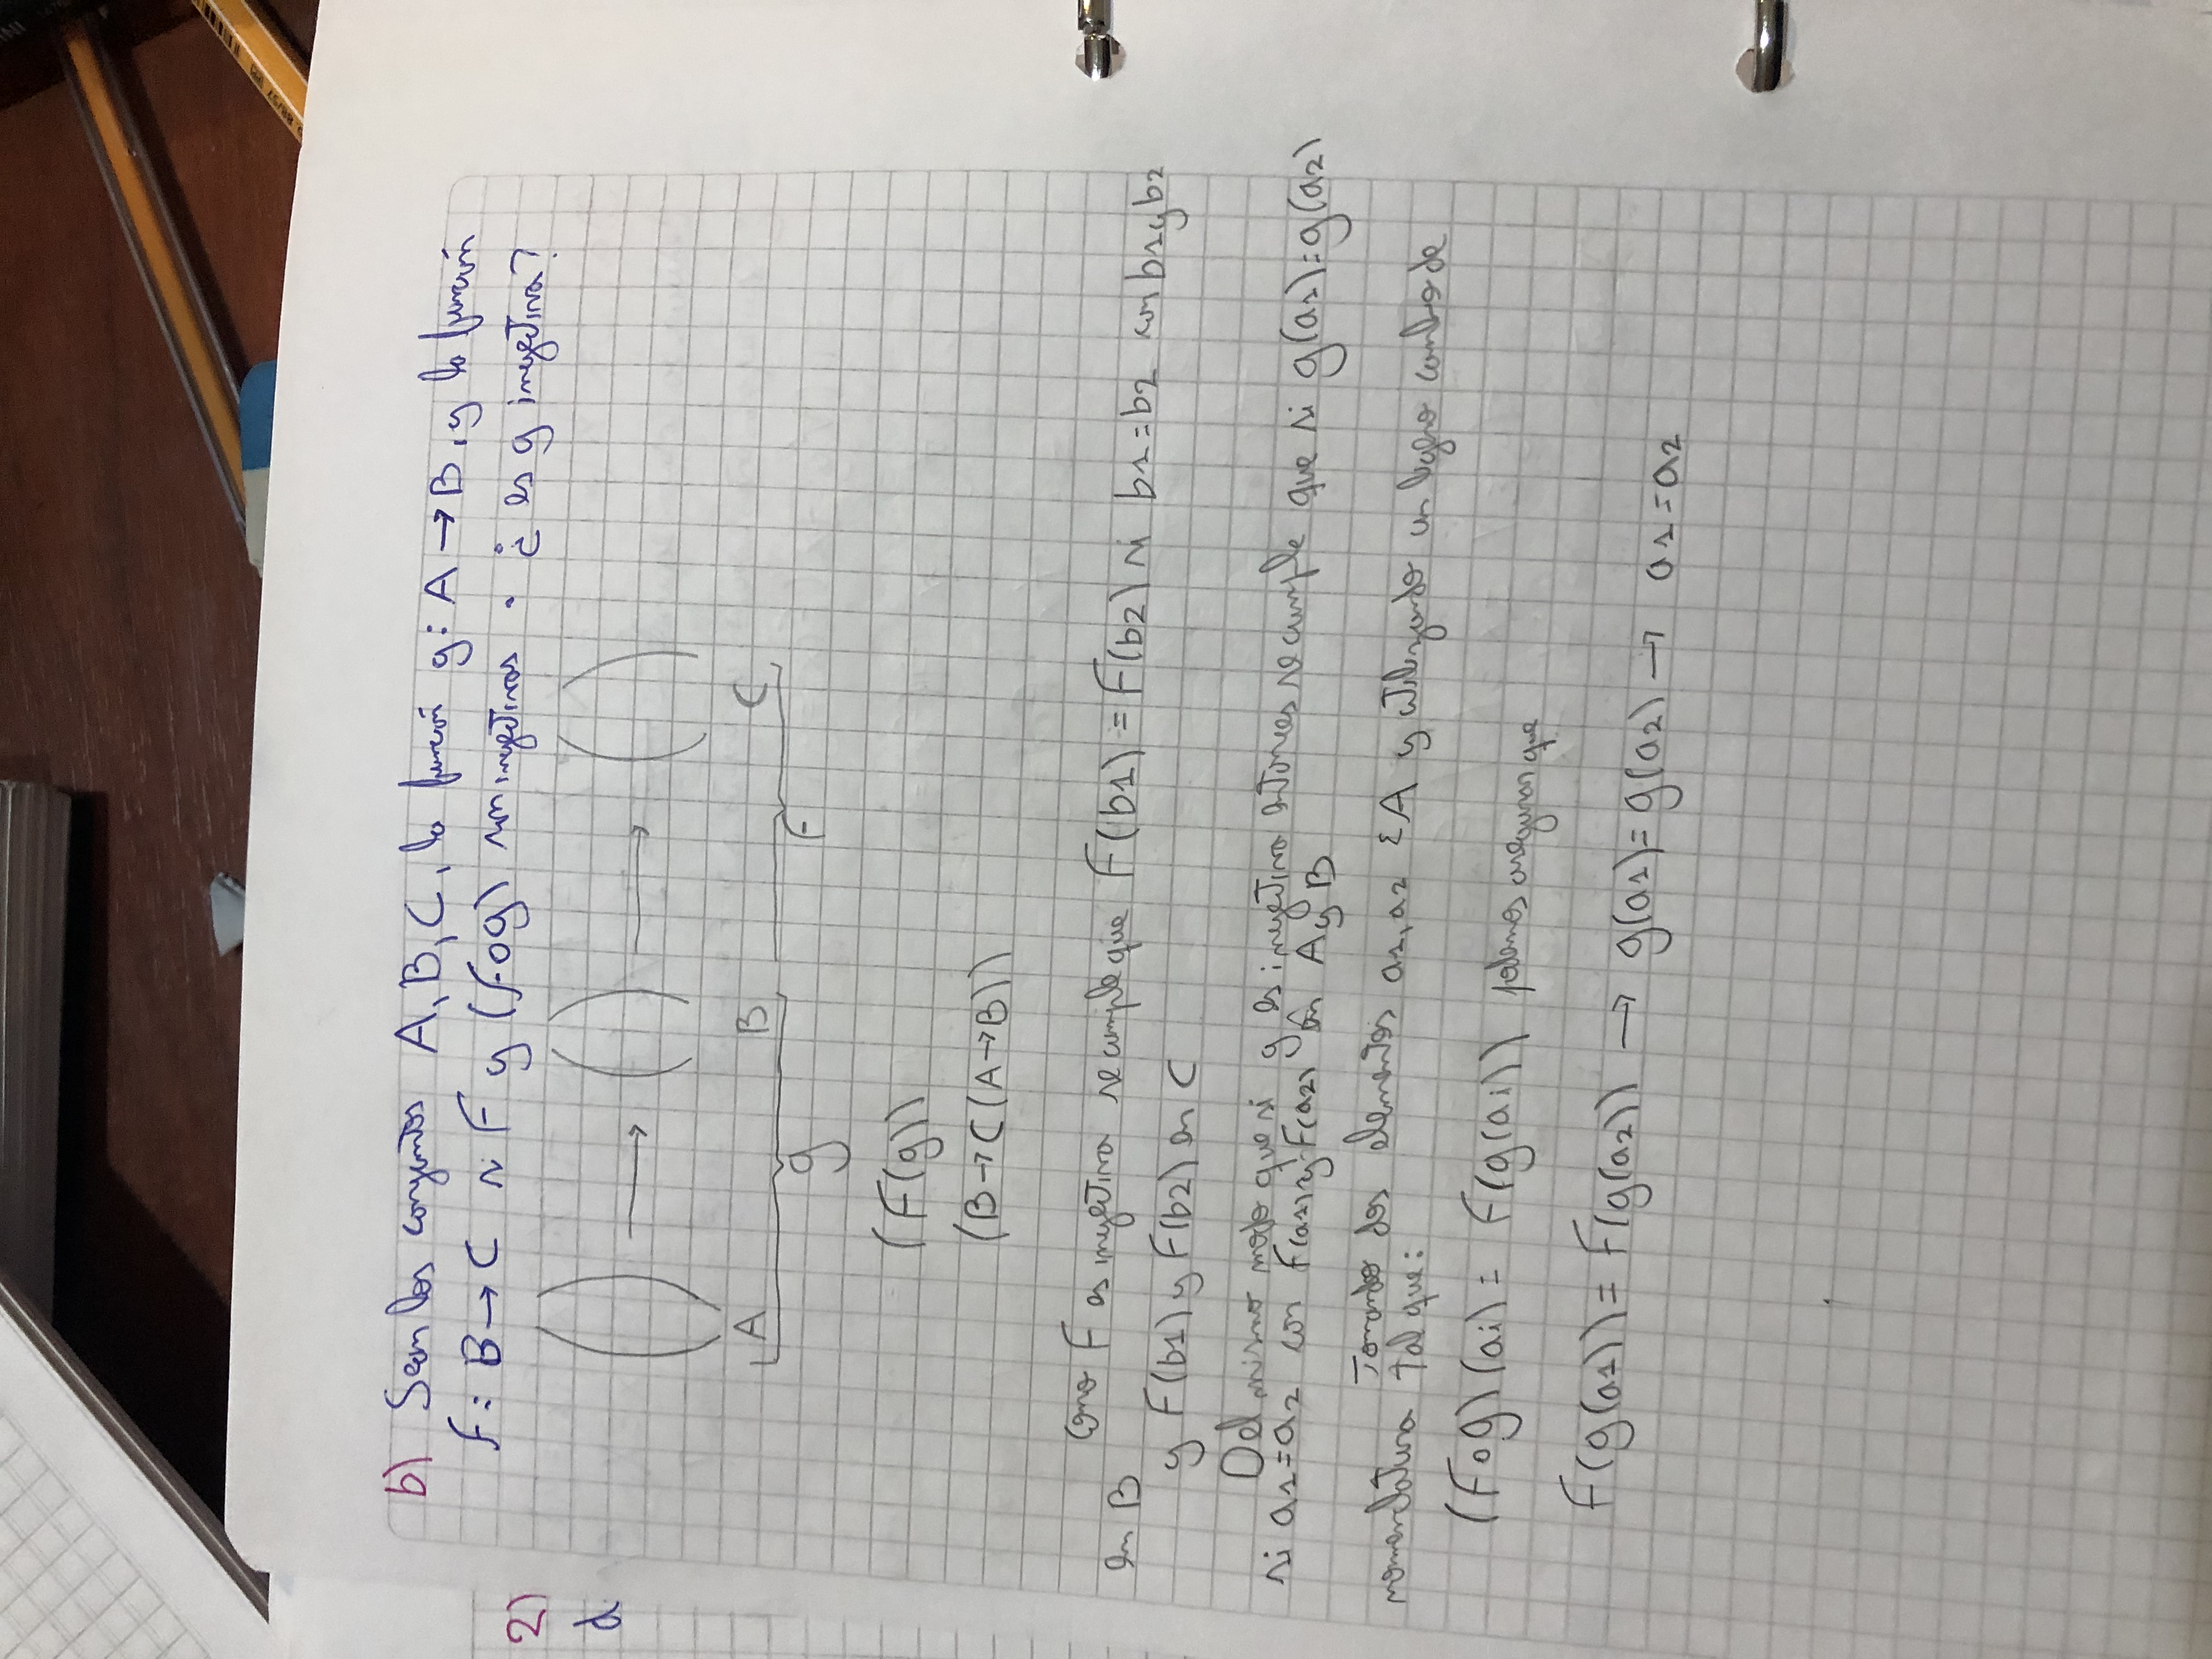 b) Sean los conjuntos A, B, C, la función g: A → B, y la función
f: B → C si F y (fog) son inyectivas. ¿es g inyectiva?
2)
d
A B C
g F
(F(g))
(B→C(A→B))
Como F es inyectiva se cumple que F(b1) = F(b2) si b1=b2 con b1 y b2
en B
y F(b1) y F(b2) en C
Del mismo modo que si g es inyectiva entonces se cumple que si g(a1)=g(a2)
si a1=a2 con F(a1) y F(a2) en A y B
Tomando dos elementos a1, a2 ∈ A y utilizando un ligero cambio de
nomenclatura tal que:
(Fog)(ai) = F(g(ai)) podemos asegurar que
F(g(a1)) = F(g(a2)) → g(a1)=g(a2) → a1=a2